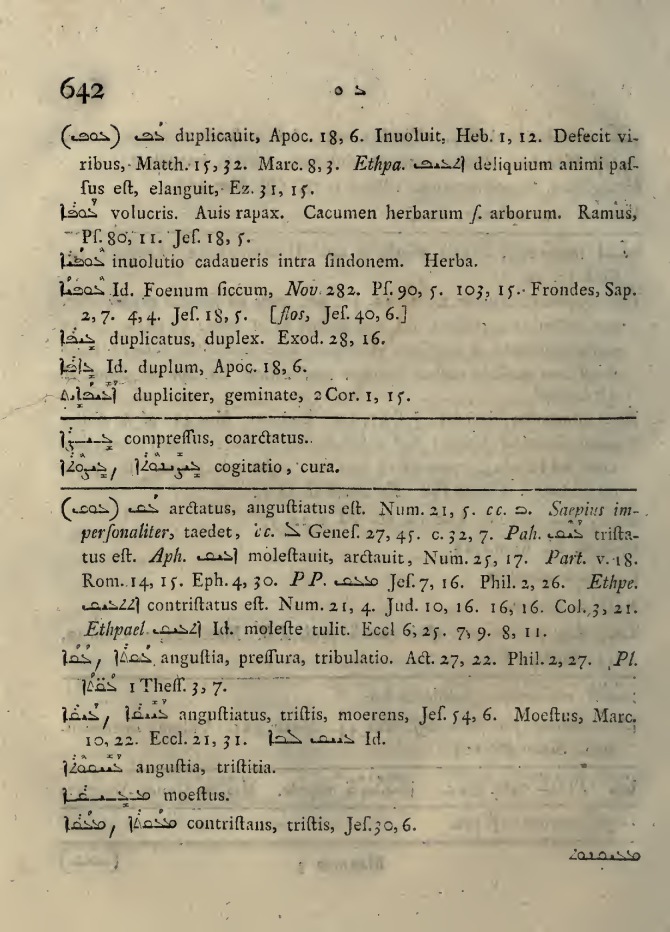 642 ܥ ܘ
(ܥܘܦ) ܥܳܦ duplicauit, Apoc. 18, 6. Inuoluit, Heb. 1, 12. Defecit vi-
ribus, Matth. 15, 32. Marc. 8, 3. Ethpa. ܐܬܥܝܦ deliquium animi paſ-
ſus eſt, elanguit, Ez. 31, 15.
ܥܘܦܐ volucris. Auis rapax. Cacumen herbarum ſ. arborum. Ramus,
Pſ. 80, 11. Jeſ. 18, 5.
ܥܘܦܝܐ inuolutio cadaueris intra ſindonem. Herba.
ܥܘܦܝܐ Id. Foenum ſiccum, Nov. 282. Pſ. 90, 5. 103, 15. Frondes, Sap.
2, 7. 4, 4. Jeſ. 18, 5. [flos, Jeſ. 40, 6.]
ܥܝܦܐ duplicatus, duplex. Exod. 28, 16.
Id. duplum, Apoc. 18, 6.
dupliciter, geminate, 2 Cor. 1, 15.
compreſſus, coarctatus.
cogitatio, cura.
(ܥܘܩ) ܥܳܩ arctatus, anguſtiatus eſt. Num. 21, 5. cc. ܒ. Saepius im-
perſonaliter, taedet, cc. ܠ Geneſ. 27, 45. c. 32, 7. Pah. ܥܝܩ triſta-
tus eſt. Aph. ܐܥܝܩ moleſtauit, arctauit, Num. 25, 17. Part. v. 18.
Rom. 14, 15. Eph. 4, 30. PP. Jeſ. 7, 16. Phil. 2, 26. Ethpe.
ܐܬܬܥܝܩ contriſtatus eſt. Num. 21, 4. Jud. 10, 16. 16, 16. Col. 3, 21.
Ethpael. ܐܬܥܝܩ Id. moleſte tulit. Eccl 6, 25. 7, 9. 8, 11.
ܥܩܐ, ܥܩܬܐ anguſtia, preſſura, tribulatio. Act. 27, 22. Phil. 2, 27. Pl.
ܥܩܬܐ 1 Theſſ. 3, 7.
ܥܝܩܐ, anguſtiatus, triſtis, moerens, Jeſ. 54, 6. Moeſtus, Marc.
10, 22. Eccl. 21, 31. Id.
ܥܝܝܩܘܬܐ anguſtia, triſtitia.
moeſtus.
ܡܥܝܩܐ, contriſtans, triſtis, Jeſ. 30, 6.